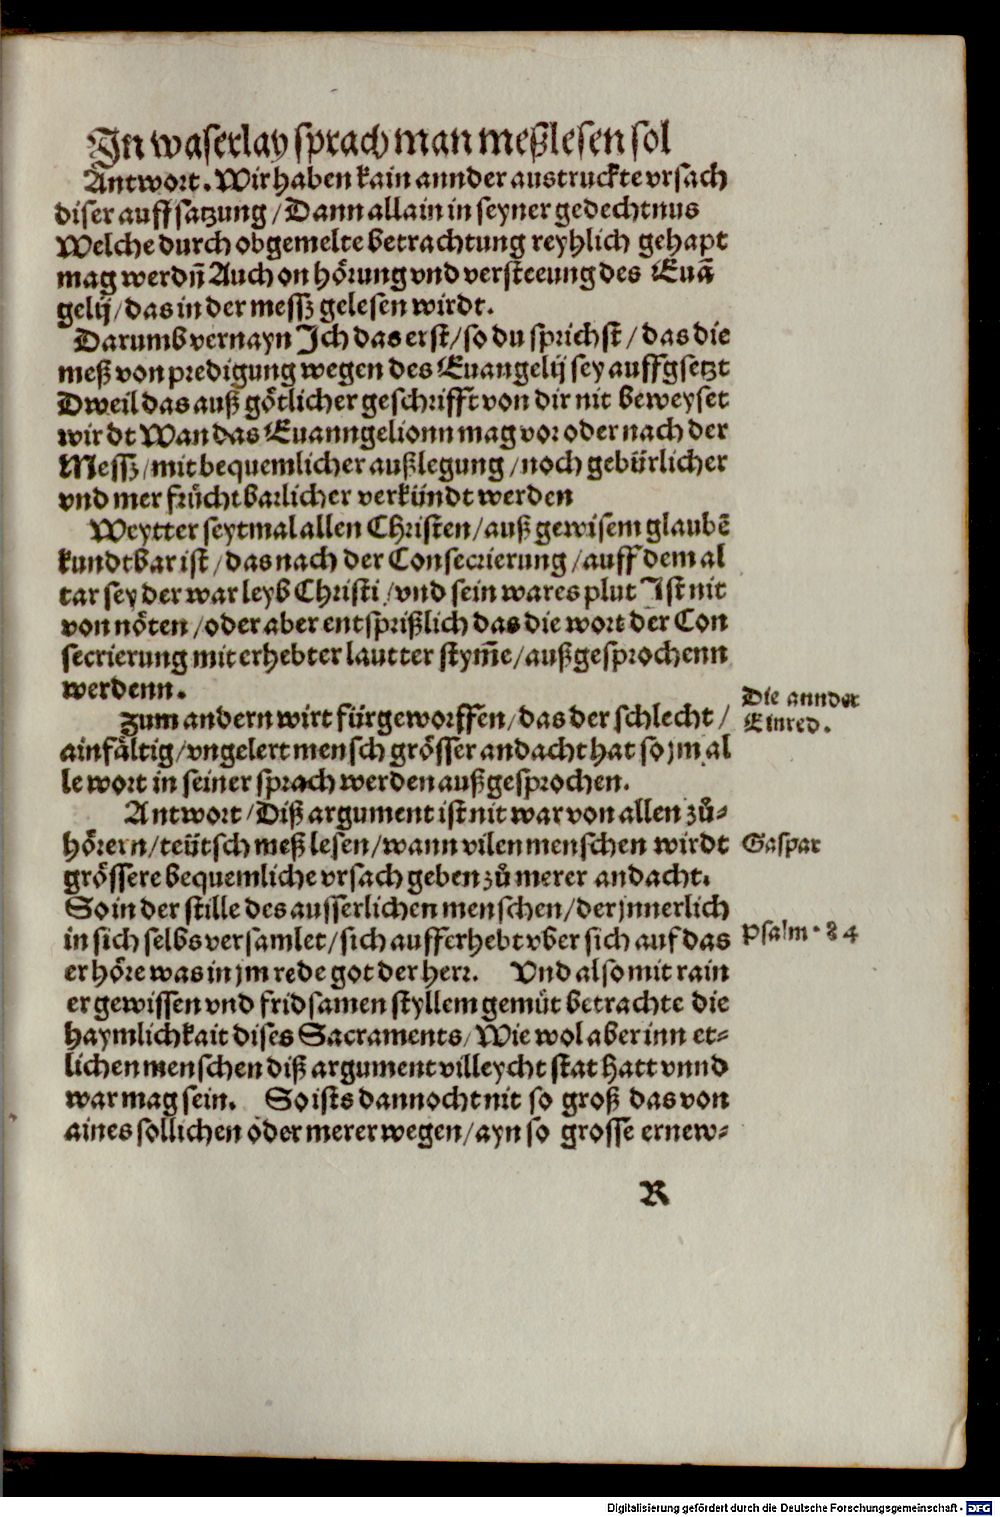 In waserlay sprach man meßlesen sol
Antwort. Wir haben kain annder austruckte vrsach
diser auffsatzung / Dann allain in seyner gedechtnus
Welche durch obgemelte betrachtung reyhlich gehapt
mag werdñ Auch on hörung vnd versteeung des Euã
gelij / das in der messz gelesen wirdt.
Darumb vernayn Ich das erst / so du sprichst / das die
meß von predigung wegen des Euangelij sey auffgsetzt
Dweil das auß götlicher geschrifft von dir nit beweyset
wirdt Wan das Euanngelionn mag vor oder nach der
Messz / mit bequemlicher außlegung / noch gebürlicher
vnd mer früchtbarlicher verkündt werden
Weytter seytmal allen Christen / auß gewisem glaubẽ
kundtbar ist / das nach der Consecrierung / auff dem al
tar sey der war leyb Christi / vnd sein wares plut Ist nit
von nöten / oder aber entsprißlich das die wort der Con
secrierung mit erhebter lautter stym̃e / außgesprochenn
werdenn.
Die annder
Einred.
Zum andern wirt fürgeworffen / das der schlecht /
ainfältig / vngelert mensch grösser andacht hat so jm al
le wort in seiner sprach werden außgesprochen.
Antwort / Diß argument ist nit war von allen zů-
hörern / teütsch meß lesen / wann vilen menschen wirdt
Gaspar
grössere bequemliche vrsach geben zů merer andacht.
So in der stille des ausserlichen menschen / der jnnerlich
in sich selbs versamlet / sich aufferhebt vber sich auf das
Psalm. 84
er höre was in jm rede got der herr. Vnd also mit rain
er gewissen vnd fridsamen styllem gemüt betrachte die
haymlichkait dises Sacraments / Wie wol aber inn et-
lichen menschen diß argument villeycht stat hatt vnnd
war mag sein. So ists dannocht nit so groß das von
aines sollichen oder merer wegen / ayn so grosse ernew-
R
Digitalisierung gefördert durch die Deutsche Forschungsgemeinschaft - DFG